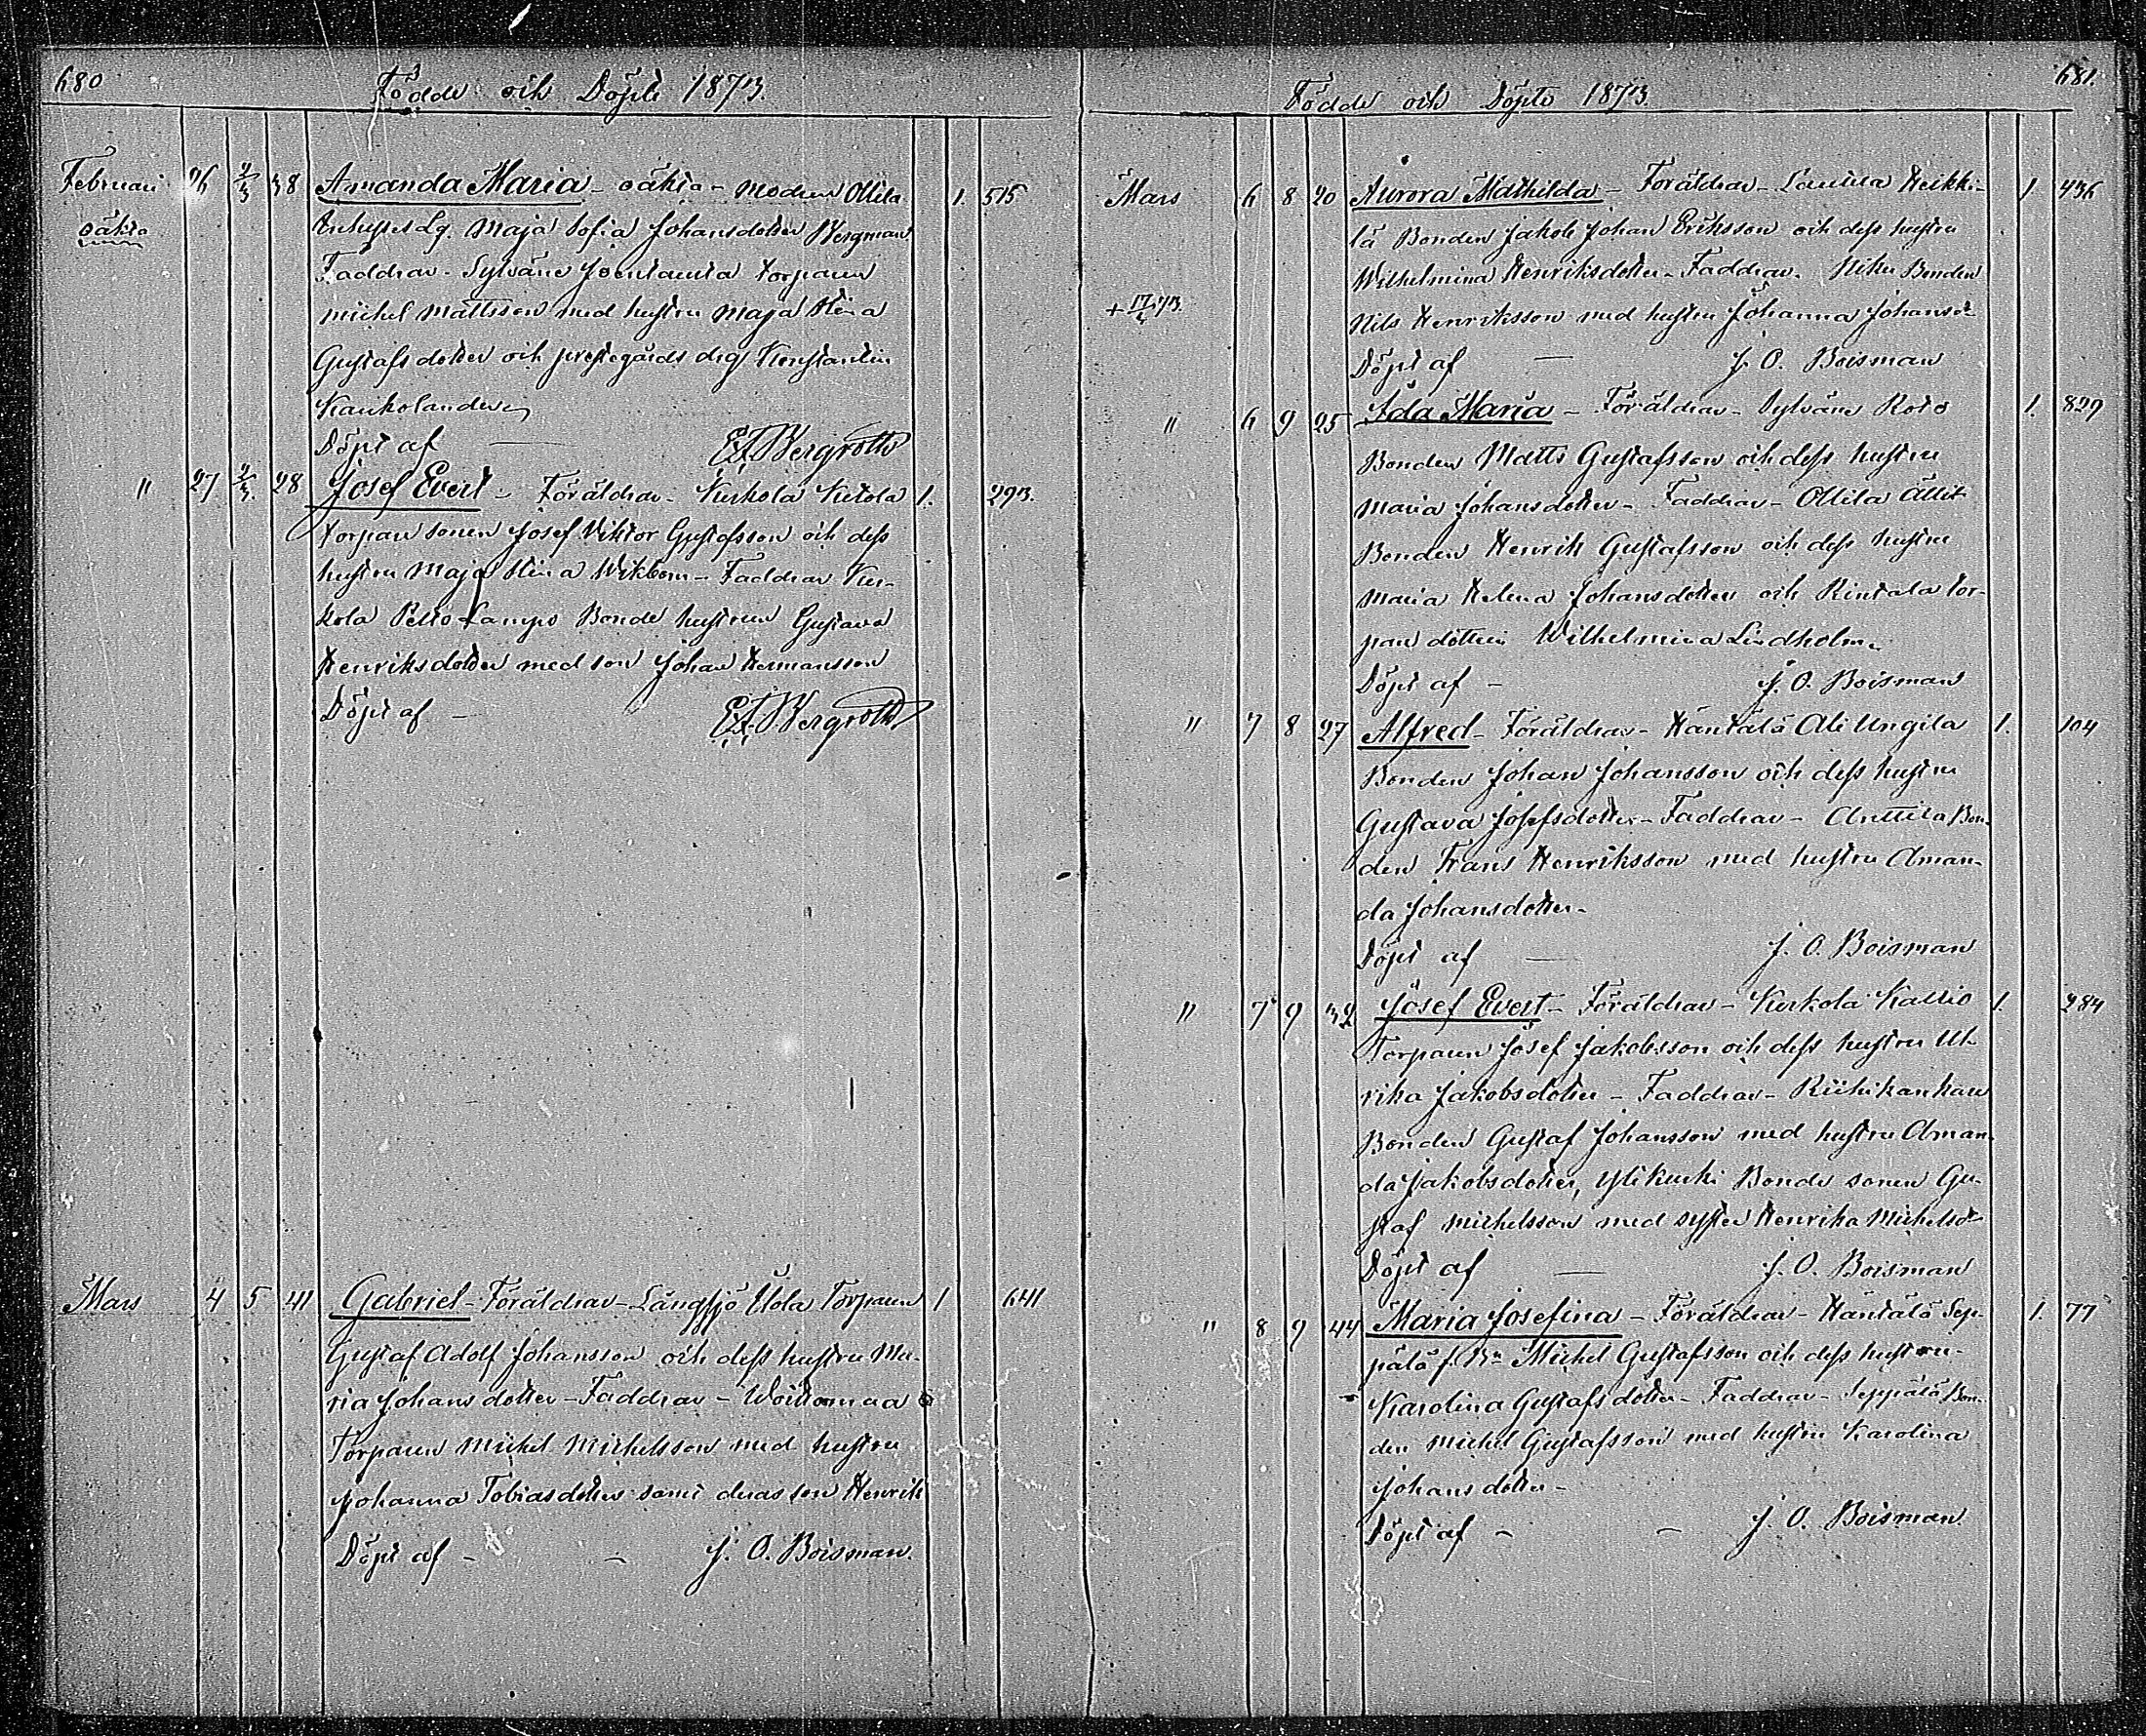 680
Födde och Döpte 1873.
Februari 26 2/3 38 Amanda Maria - oäkta - modren Ollila 1. 515
oäkta
Inhyses Lg. Maja Sofia Johansdotter Bergman
Faddrar - Sylväne Torparen
Michel Mattsson med hustru Maja Stina
Gustafsdotter och prestegårds drg Konstantin
Kaukolander
Döpt af — E.F. Bergroth
" 27 2/3. 28 Josef Evert - Föräldrar - Kurkola Kulola 1. 293.
Torpare sonen Josef Viktor Gustafsson och dess
hustru Maja Stina Wikbom - Faddrar Kur-
kola Pelto Lampo Bonde hustrun Gustava
Henriksdotter med son Johan Hermansson
Döpt af - E.F. Bergroth
Mars 4 5 41 Gabriel - Föräldrar - Långsjö Ylola Torparen 1 641
Gustaf Adolf Johansson och dess hustru Ma-
ria Johansdotter - Faddrar - Woittomaa
Torparen Michel Michelsson med hustru
Johanna Tobiasdotter samt deras son Henrik
Döpt af - - J. O. Boisman.
681.
Födde och Döpte 1873.
Mars 6 8 20 Aurora Mathilda - Föräldrar - Heikki- 1. 436
lä Bonden Jakob Johan Eriksson och dess hustru
Wilhelmina Henriksdotter - Faddrar - Niku Bonden
+ 17/4 73.
Nils Henriksson med hustru Johanna Johansdr
Döpt af — J. O. Boisman
" 6 9 25 Ada Maria - Föräldrar - Sylväne Roto 1. 829
Bonden Matts Gustafsson och dess hustru
Maria Johansdotter - Faddrar - Ollila
Bonden Henrik Gustafsson och dess hustru
Maria Helena Johansdotter och Rintala tor-
pare dottren Wilhelmina Lindholm.
Döpt af - J. O. Boisman
" 7 8 27 Alfred - Föräldrar - Häntälä Ali Ungila 1. 104
Bonden Johan Johansson och dess hustru
Gustava Josefsdotter - Faddrar - Anttila Bon-
den Frans Henriksson med hustru Aman-
da Johansdotter -
Döpt af — J. O. Boisman
" 7 9 32 Josef Evert - Föräldrar - Kurkola Kallio 1. 284
Torparen Josef Jakobsson och dess hustru Ul-
rika Jakobsdotter - Faddrar - Riihikankare
Bonden Gustaf Johansson med hustru Aman-
da Jakobsdotter, Ylikurki Bonde sonen Gu-
staf Michelsson med syster Henrika Michelsdr
Döpt af — J. O. Boisman
" 8 9 44 Maria Josefina - Föräldrar - Häntälä Sep- 1. 77
pälä f. Bn Michel Gustafsson och dess hustru
Karolina Gustafsdotter - Faddrar - Seppälä Bon-
den Michel Gustafsson med hustru Karolina
Johansdotter -
Döpt af - - J. O. Boisman.